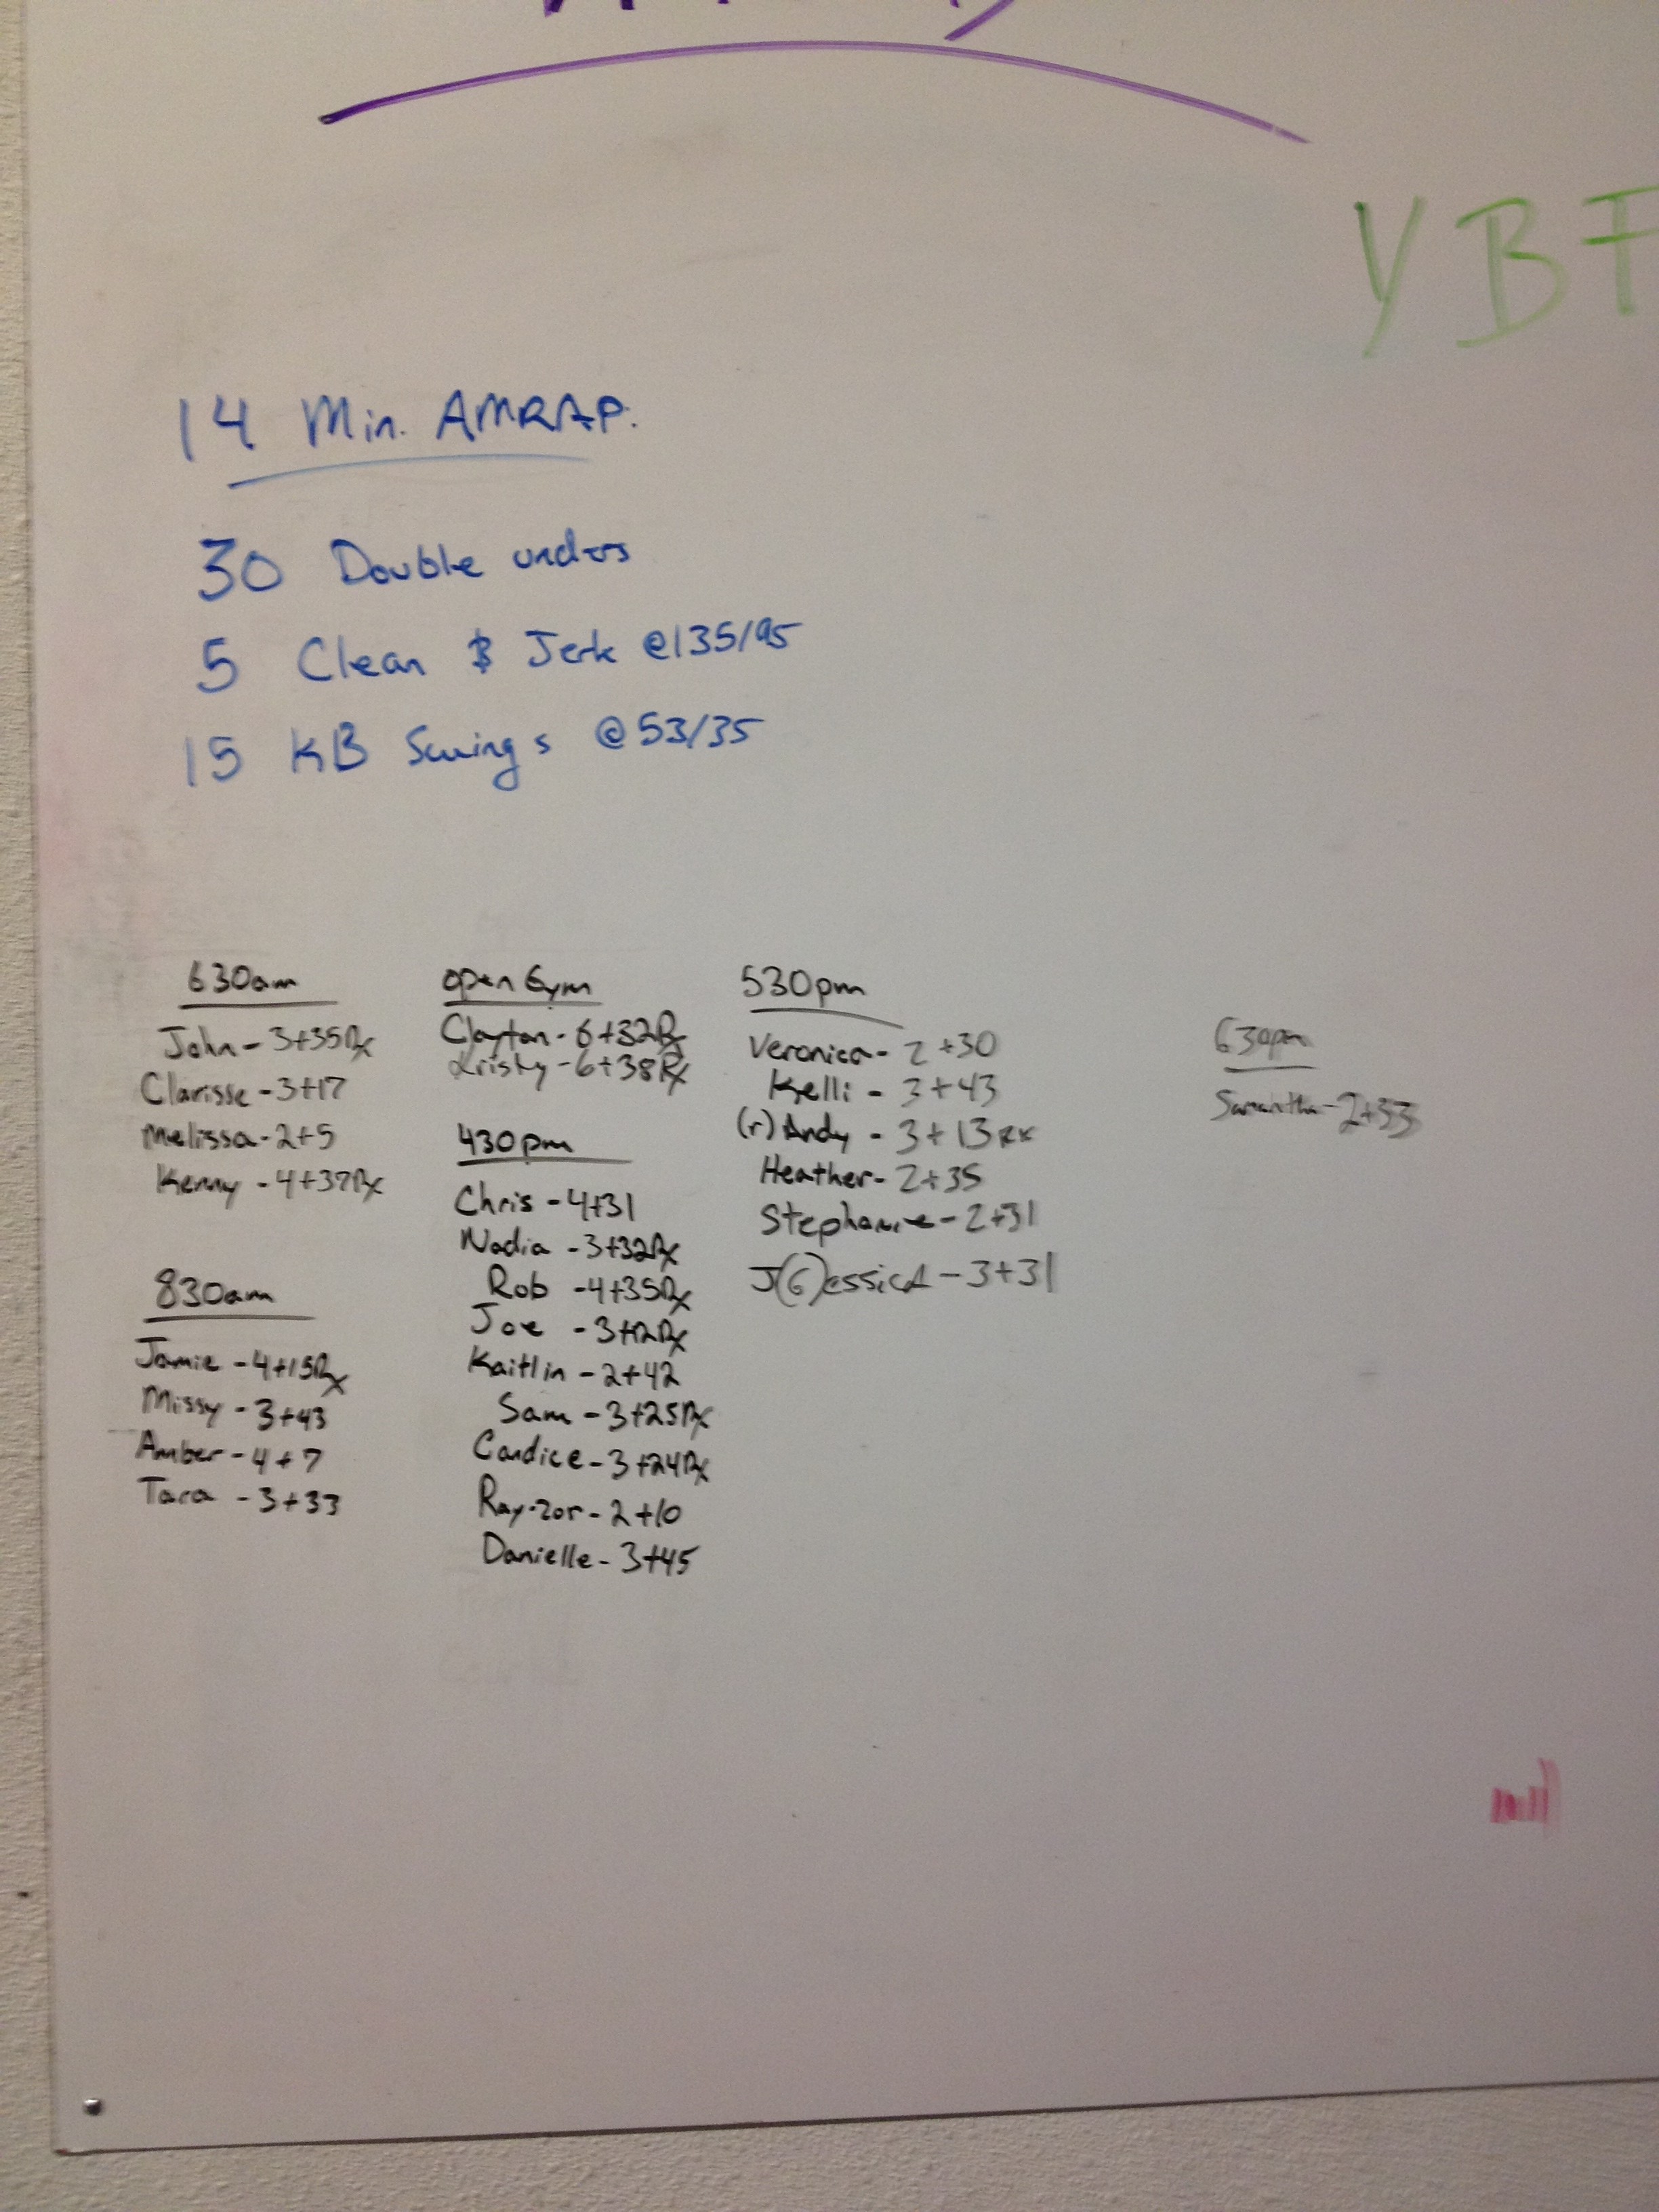 YBF
14 Min. AMRAP.
30 Double unders
5 Clean & Jerk @135/95
15 KB Swings @53/35
630am
John - 3+35Rx
Clarisse - 3+17
Melissa - 2+5
Kenny - 4+37Rx
830am
Jamie - 4+15Rx
Missy - 3+43
Amber - 4+7
Tara - 3+33
open Gym
Clayton - 6+32Rx
Kristy - 6+38Rx
430pm
Chris - 4+31
Nadia - 3+32Rx
Rob - 4+35Rx
Joe - 3+12Rx
Kaitlin - 2+42
Sam - 3+25Rx
Candice - 3+24Rx
Ray-zor - 2+10
Danielle - 3+45
530pm
Veronica - 2+30
Kelli - 3+43
(r) Andy - 3+13 RX
Heather - 2+35
Stephanie - 2+31
J(G)essica - 3+31
630pm
Samantha - 2+33